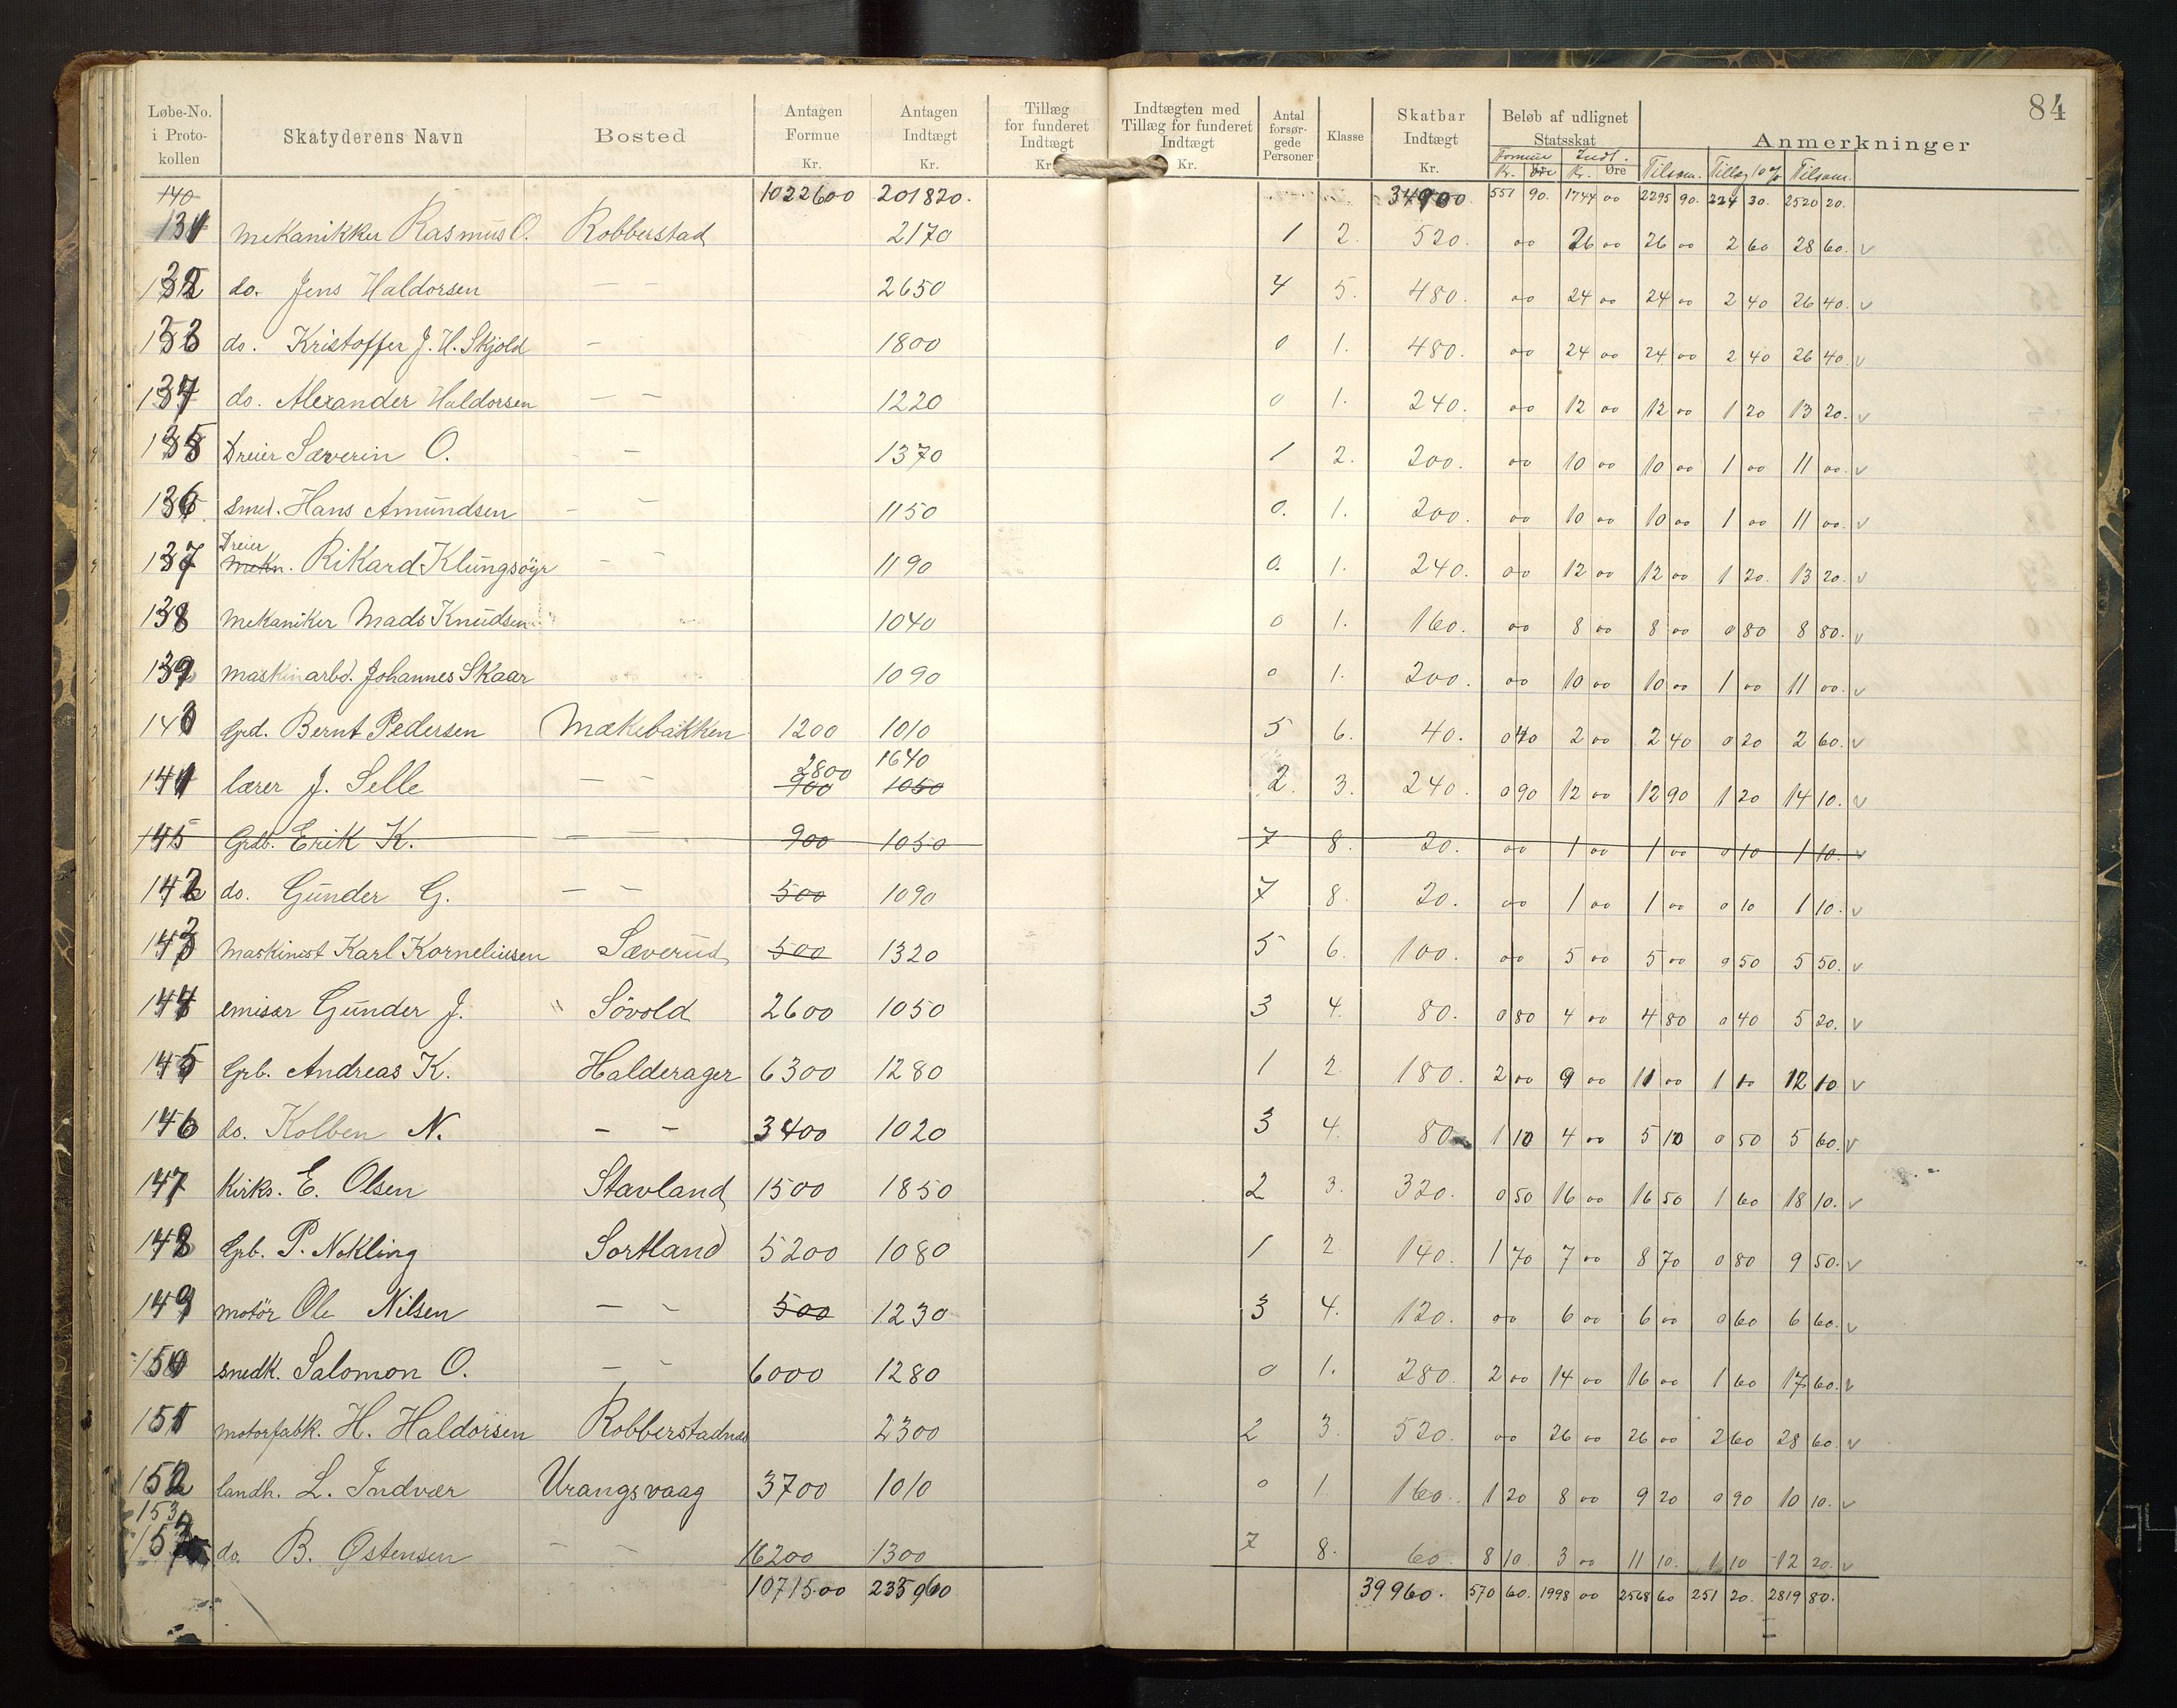 84
Løbe-No. i Proto-kollen | Skatyderens Navn | Bosted | Antagen Formue Kr. | Antagen Indtægt Kr. | Tillæg for funderet Indtægt Kr. | Indtægten med Tillæg for funderet Indtægt Kr. | Antal forsør-gede Personer | Klasse | Skatbar Indtægt Kr. | Beløb af udlignet Statsskat | Anmerkninger
Formue Kr. Øre | Indt. Kr. Øre | Tilsam. | Tillæg 10 % | Tilsam.
140 1022600 201820. 34900 551 90. 1744 00 2295 90. 224 30. 2520 20.
131 Mekanikker Rasmus O. Robberstad 2170 1 2. 520. 00 26 00 26 00 2 60 28 60. v
132 do. Jens Haldorsen — — 2650 4 5. 480. 00 24 00 24 00 2 40 26 40. v
133 do. Kristoffer J. H. Skjold — 1800 0 1. 480. 00 24 00 24 00 2 40 26 40. v
134 do. Alexander Haldorsen — — 1220 0 1. 240. 00 12 00 12 00 1 20 13 20. v
135 Dreier Sæverin O. — 1370 1 2. 200. 00 10 00 10 00 1 00 11 00. v
136 Smed. Hans Amundsen — — 1150 0. 1. 200. 00 10 00 10 00 1 00 11 00. v
Dreier
137 Mekn. Rikard Klungsöyr — — 1190 0. 1. 240. 00 12 00 12 00 1 20. 13 20. v
138 Mekaniker Mads Knudsen 1040 0 1. 160. 00 8 00 8 00 0 80 8 80. v
139 Maskinarbd. Johannes Skaar 1090 0 1. 200. 00 10 00 10 00 1 00 11 00. v
140 Grd. Bernt Pedersen Mækebakken 1200 1010 5 6. 40. 0 40 2 00 2 40 0 20 2 60. v
2800 1640
141 lærer J. Selle — — 900 1050 2. 3. 240. 0 90 12 00 12 90 1 20 14 10. v
145 Grdb. Erik K. — — 900 1050 7 8. 20. 00 1 00 1 00 0 10 1 10. v
142 do. Gunder G. — — 500 1090 7 8. 20. 00 1 00 1 00 0 10 1 10. v
143 Maskinist Karl Korneliusen Sæverud 500 1320 5 6. 100. 00 5 00 5 00 0 50 5 50. v
144 emisær Gunder J. " Sövold 2600 1050 3 4. 80. 0 80 4 00 4 80 0 40 5 20. v
145 Grb. Andreas K. Halderager 6300 1280 1 2 180. 2 00 9 00 11 00 1 10 12 10. v
146 do. Kolben N. — — 3400 1020 3 4. 80 1 10 4 00 5 10 0 50 5 60. v
147 Kirks. E. Olsen Stavland 1500 1850 2 3. 320. 0 50 16 00 16 50 1 60 18 10. v
148 Grb. P. Nøkling Sortland 5200 1080 1 2 140. 1 70 7 00 8 70 0 80 9 50. v
149 motör Ole Nilsen — — 500 1230 3 4. 120. 00 6 00 6 00 0 60 6 60. v
150 snedk. Salomon O. — — 6000 1280 0 1. 280. 2 00 14 00 16 00 1 60 17 60. v
151 motorfabk. H. Haldorsen Robberstadnæs 2300 2 3. 520. 00 26 00 26 00 2 60 28 60. v
152 landh. L. Indvær Urangsvaag 3700 1010 0 1. 160. 1 20 8 00 9 20 0 90 10 10. v
153
153 do B. Østensen — — 16200 1300 7 8. 60. 8 10. 3 00 11 10. 1 10 12 20. v
1071500 235960 39960. 570 60. 1998 00 2568 60 251 20. 2819 80.